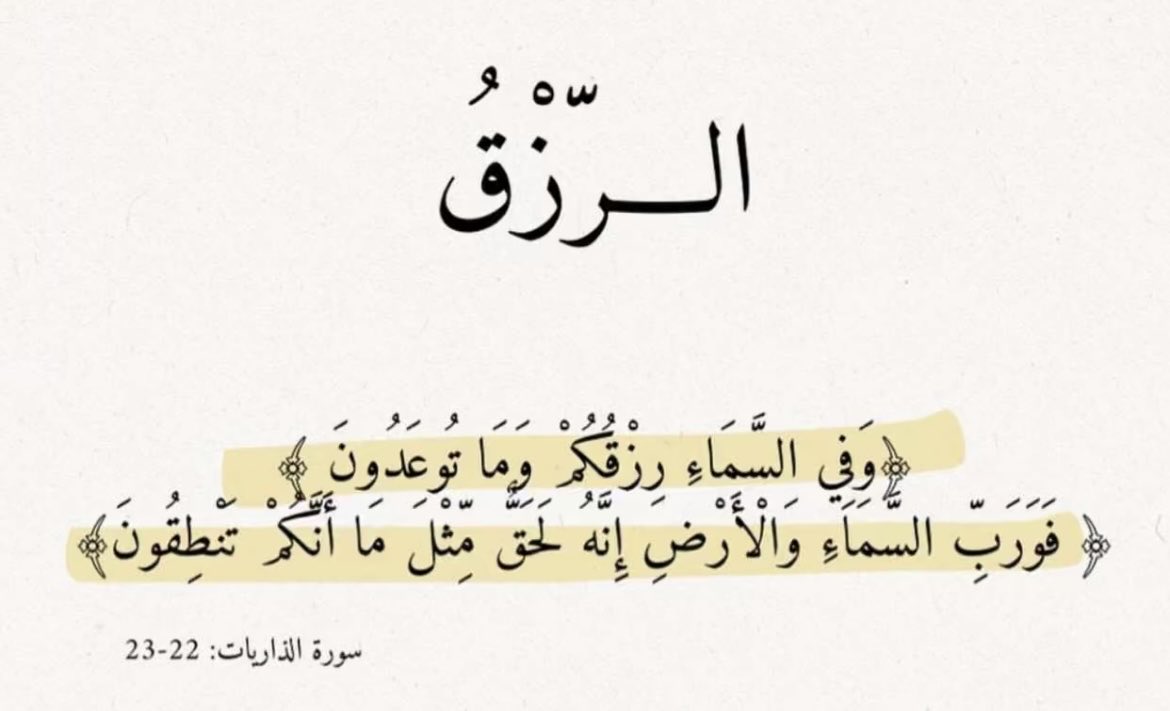 الـــرّزْقُ
﴿وَفِي السَّمَاءِ رِزْقُكُمْ وَمَا تُوعَدُونَ﴾
﴿فَوَرَبِّ السَّمَاءِ وَالْأَرْضِ إِنَّهُ لَحَقٌّ مِّثْلَ مَا أَنَّكُمْ تَنْطِقُونَ﴾
سورة الذاريات: 22-23